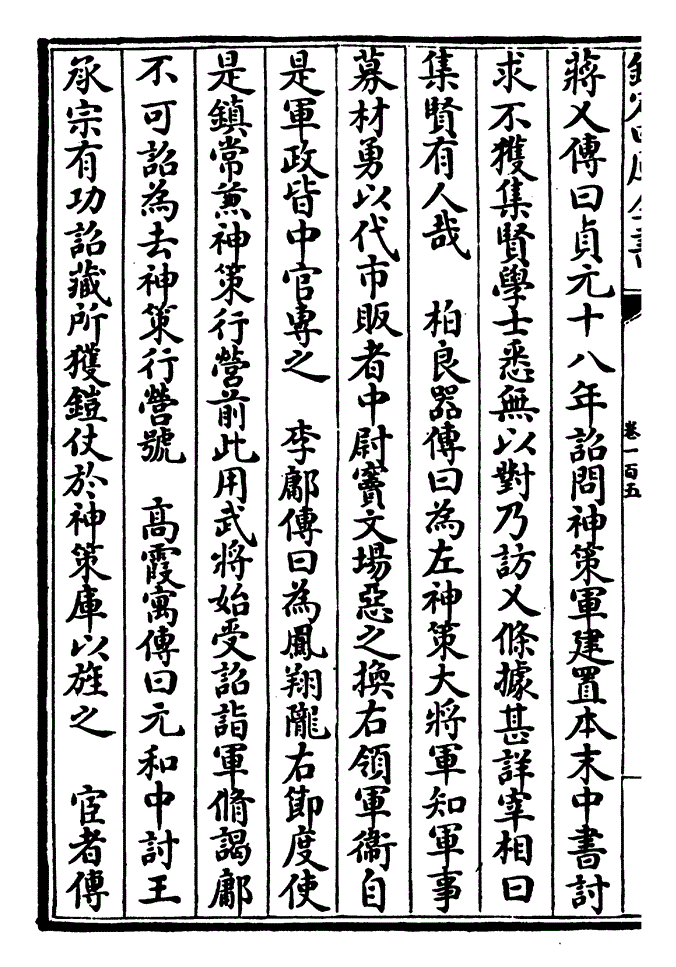 欽定四庫全書
卷一百五
蔣乂傳曰貞元十八年詔問神策軍建置本末中書討
求不獲集賢學士悉無以對乃訪乂條據甚詳宰相曰
集賢有人哉　柏良器傳曰為左神策大將軍知軍事
募材勇以代市販者中尉竇文場惡之換右領軍衞自
是軍政皆中官專之　李鄘傳曰為鳳翔隴右節度使
是鎮常兼神策行營前此用武將始受詔詣軍脩謁鄘
不可詔為去神策行營號　高霞寓傳曰元和中討王
承宗有功詔藏所獲鎧仗於神策庫以旌之　宦者傳